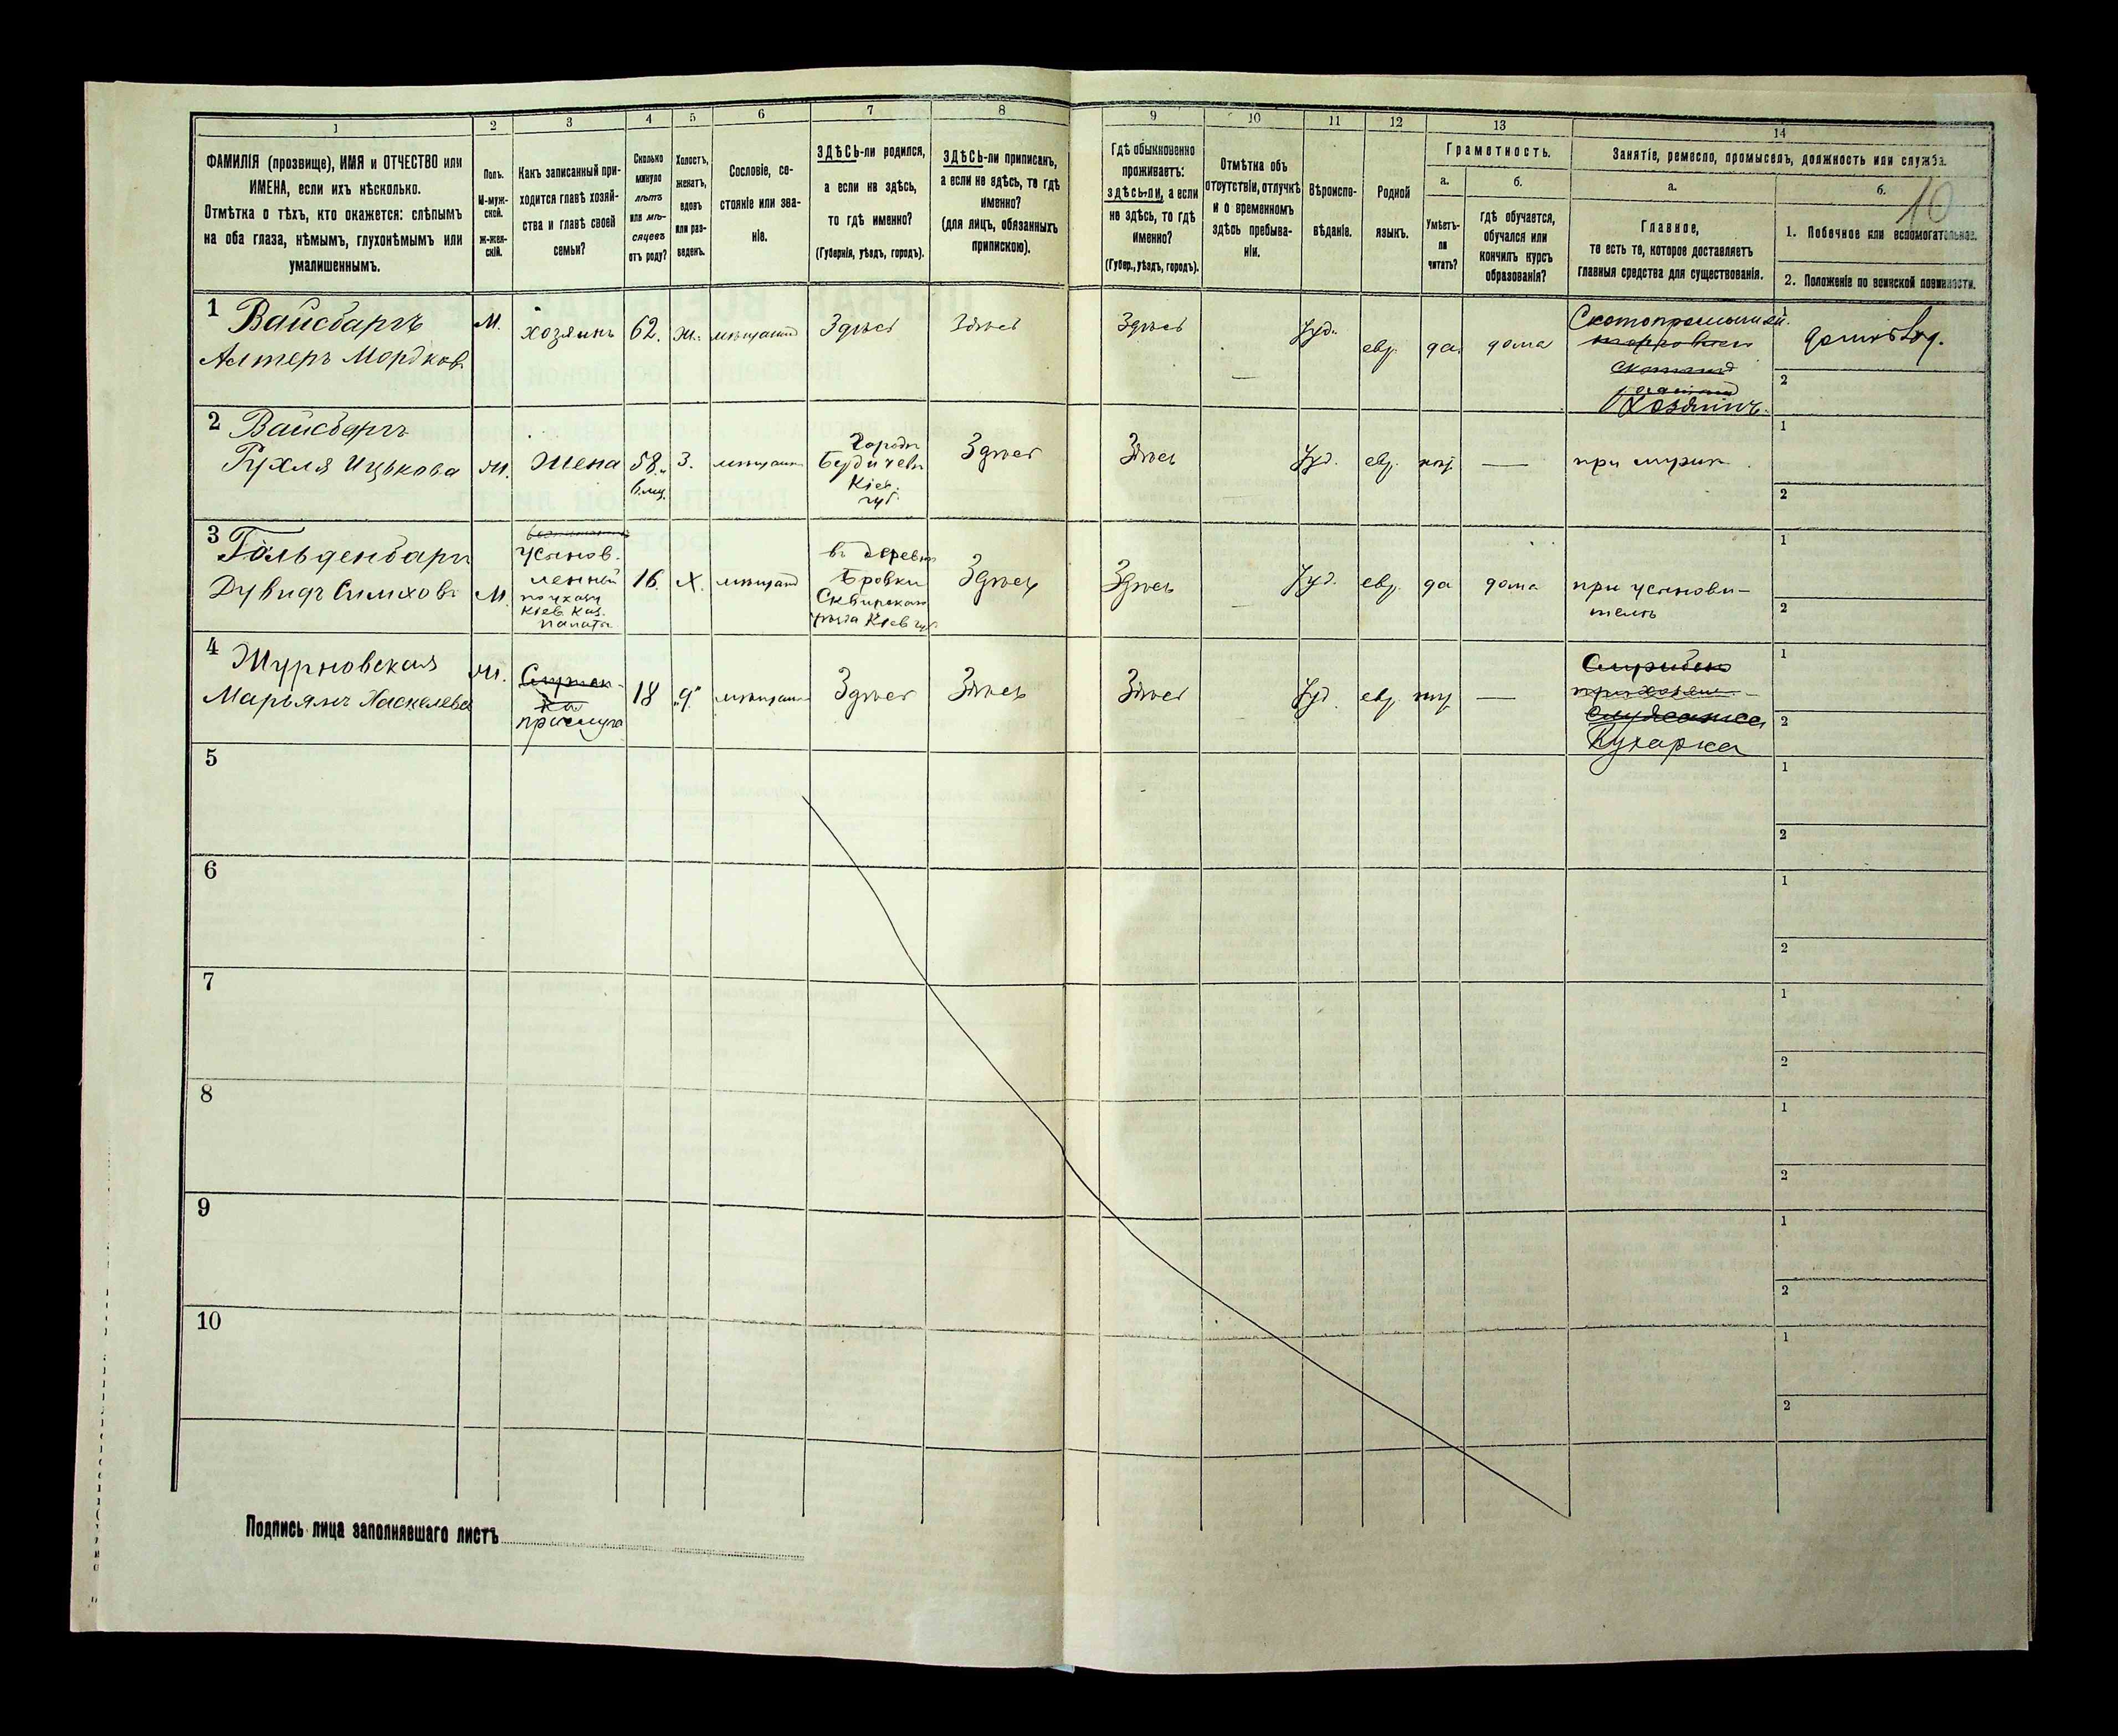 1
2
3
4
5
6
7
8
9
10
11
12
13
14
ФАМИЛІЯ (прозвище), ИМЯ и ОТЧЕСТВО или
ИМЕНА, если ихъ нѣсколько.
Отмѣтка о тѣхъ, кто окажется: слѣпымъ
на оба глаза, нѣмымъ, глухонѣмымъ или
умалишеннымъ.
Полъ.
М-муж-
ской.
ж-жен-
скій.
Какъ записанный при-
ходится главѣ хозяй-
ства и главѣ своей
семьи?
Сколько
минуло
лѣтъ
или мѣ-
сяцевъ
отъ роду?
Холостъ,
женатъ,
вдовъ
или раз-
веденъ.
Сословіе, со-
стояніе или зва-
ніе.
ЗДѢСЬ-ли родился,
а если не здѣсь,
то гдѣ именно?
(Губернія, уѣздъ, городъ).
ЗДѢСЬ-ли приписанъ,
а если не здѣсь, то гдѣ
именно?
(для лицъ, обязанныхъ
припискою).
Гдѣ обыкновенно
проживаетъ:
здѣсь-ли, а если
не здѣсь, то гдѣ
именно?
(Губер., уѣздъ, городъ).
Отмѣтка объ
отсутствіи, отлучкѣ
и о временномъ
здѣсь пребыва-
ніи.
Вѣроиспо-
вѣданіе.
Родной
языкъ.
Грамотность.
а.
Умѣетъ-
ли
читать?
б.
гдѣ обучается,
обучался или
кончилъ курсъ
образованія?
Занятіе, ремесло, промыселъ, должность или служба.
а.
Главное,
то есть то, которое доставляетъ
главныя средства для существованія.
б.
10
1. Побочное или вспомогательное.
2. Положеніе по воинской повинности.
1
Вайсбаргъ
Алтеръ Мордков.
М.
хозяинъ
62.
ж.
мѣщанин
Здѣсь
Здѣсь
Здѣсь
Іуд.
евр.
да
дома
Скотопромышлен.
Хозяинъ.
1
2
2
Вайсбаргъ
Рухля Ицькова
ж.
жена
58.
6. мц.
З.
мѣщанин
Городъ
Бердичевъ
Кіев.
губ.
Здѣсь
Здѣсь
Іуд.
евр.
при мужѣ
1
2
3
Гольденбарг
Дувидъ Симхов.
М.
усынов.
ленный
по указу
Кіев. Каз.
палаты
16.
Х.
мѣщанин
въ деревнѣ
Бровки
Сквирскаго
уѣзда Кіев. губ.
Здѣсь
Здѣсь
Іуд.
евр.
да
дома
при усынови-
телѣ
1
2
4
Журновская
Марьямъ Хаскелева
ж.
прислуга
18
д.
мѣщанин
Здѣсь
Здѣсь
Здѣсь
Іуд.
евр.
Кухарка
1
2
5
1
2
6
1
2
7
1
2
8
1
2
9
1
2
10
1
2
Подпись лица заполнявшаго листъ